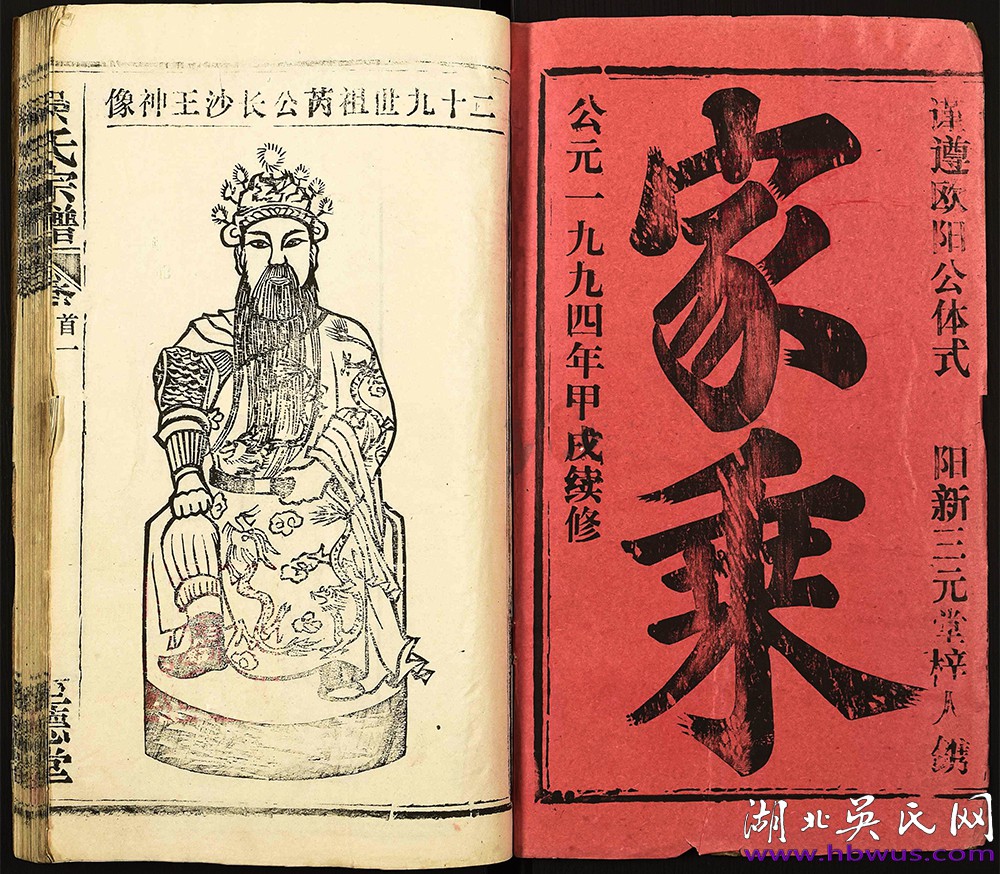 谨遵欧阳公体式 阳新三元堂梓人镌
家乘
公元一九九四年甲戌续修
二十九世祖芮公长沙王神像
吴氏宗谱
首一
德堂
湖北吳氏网
www.hbwus.com